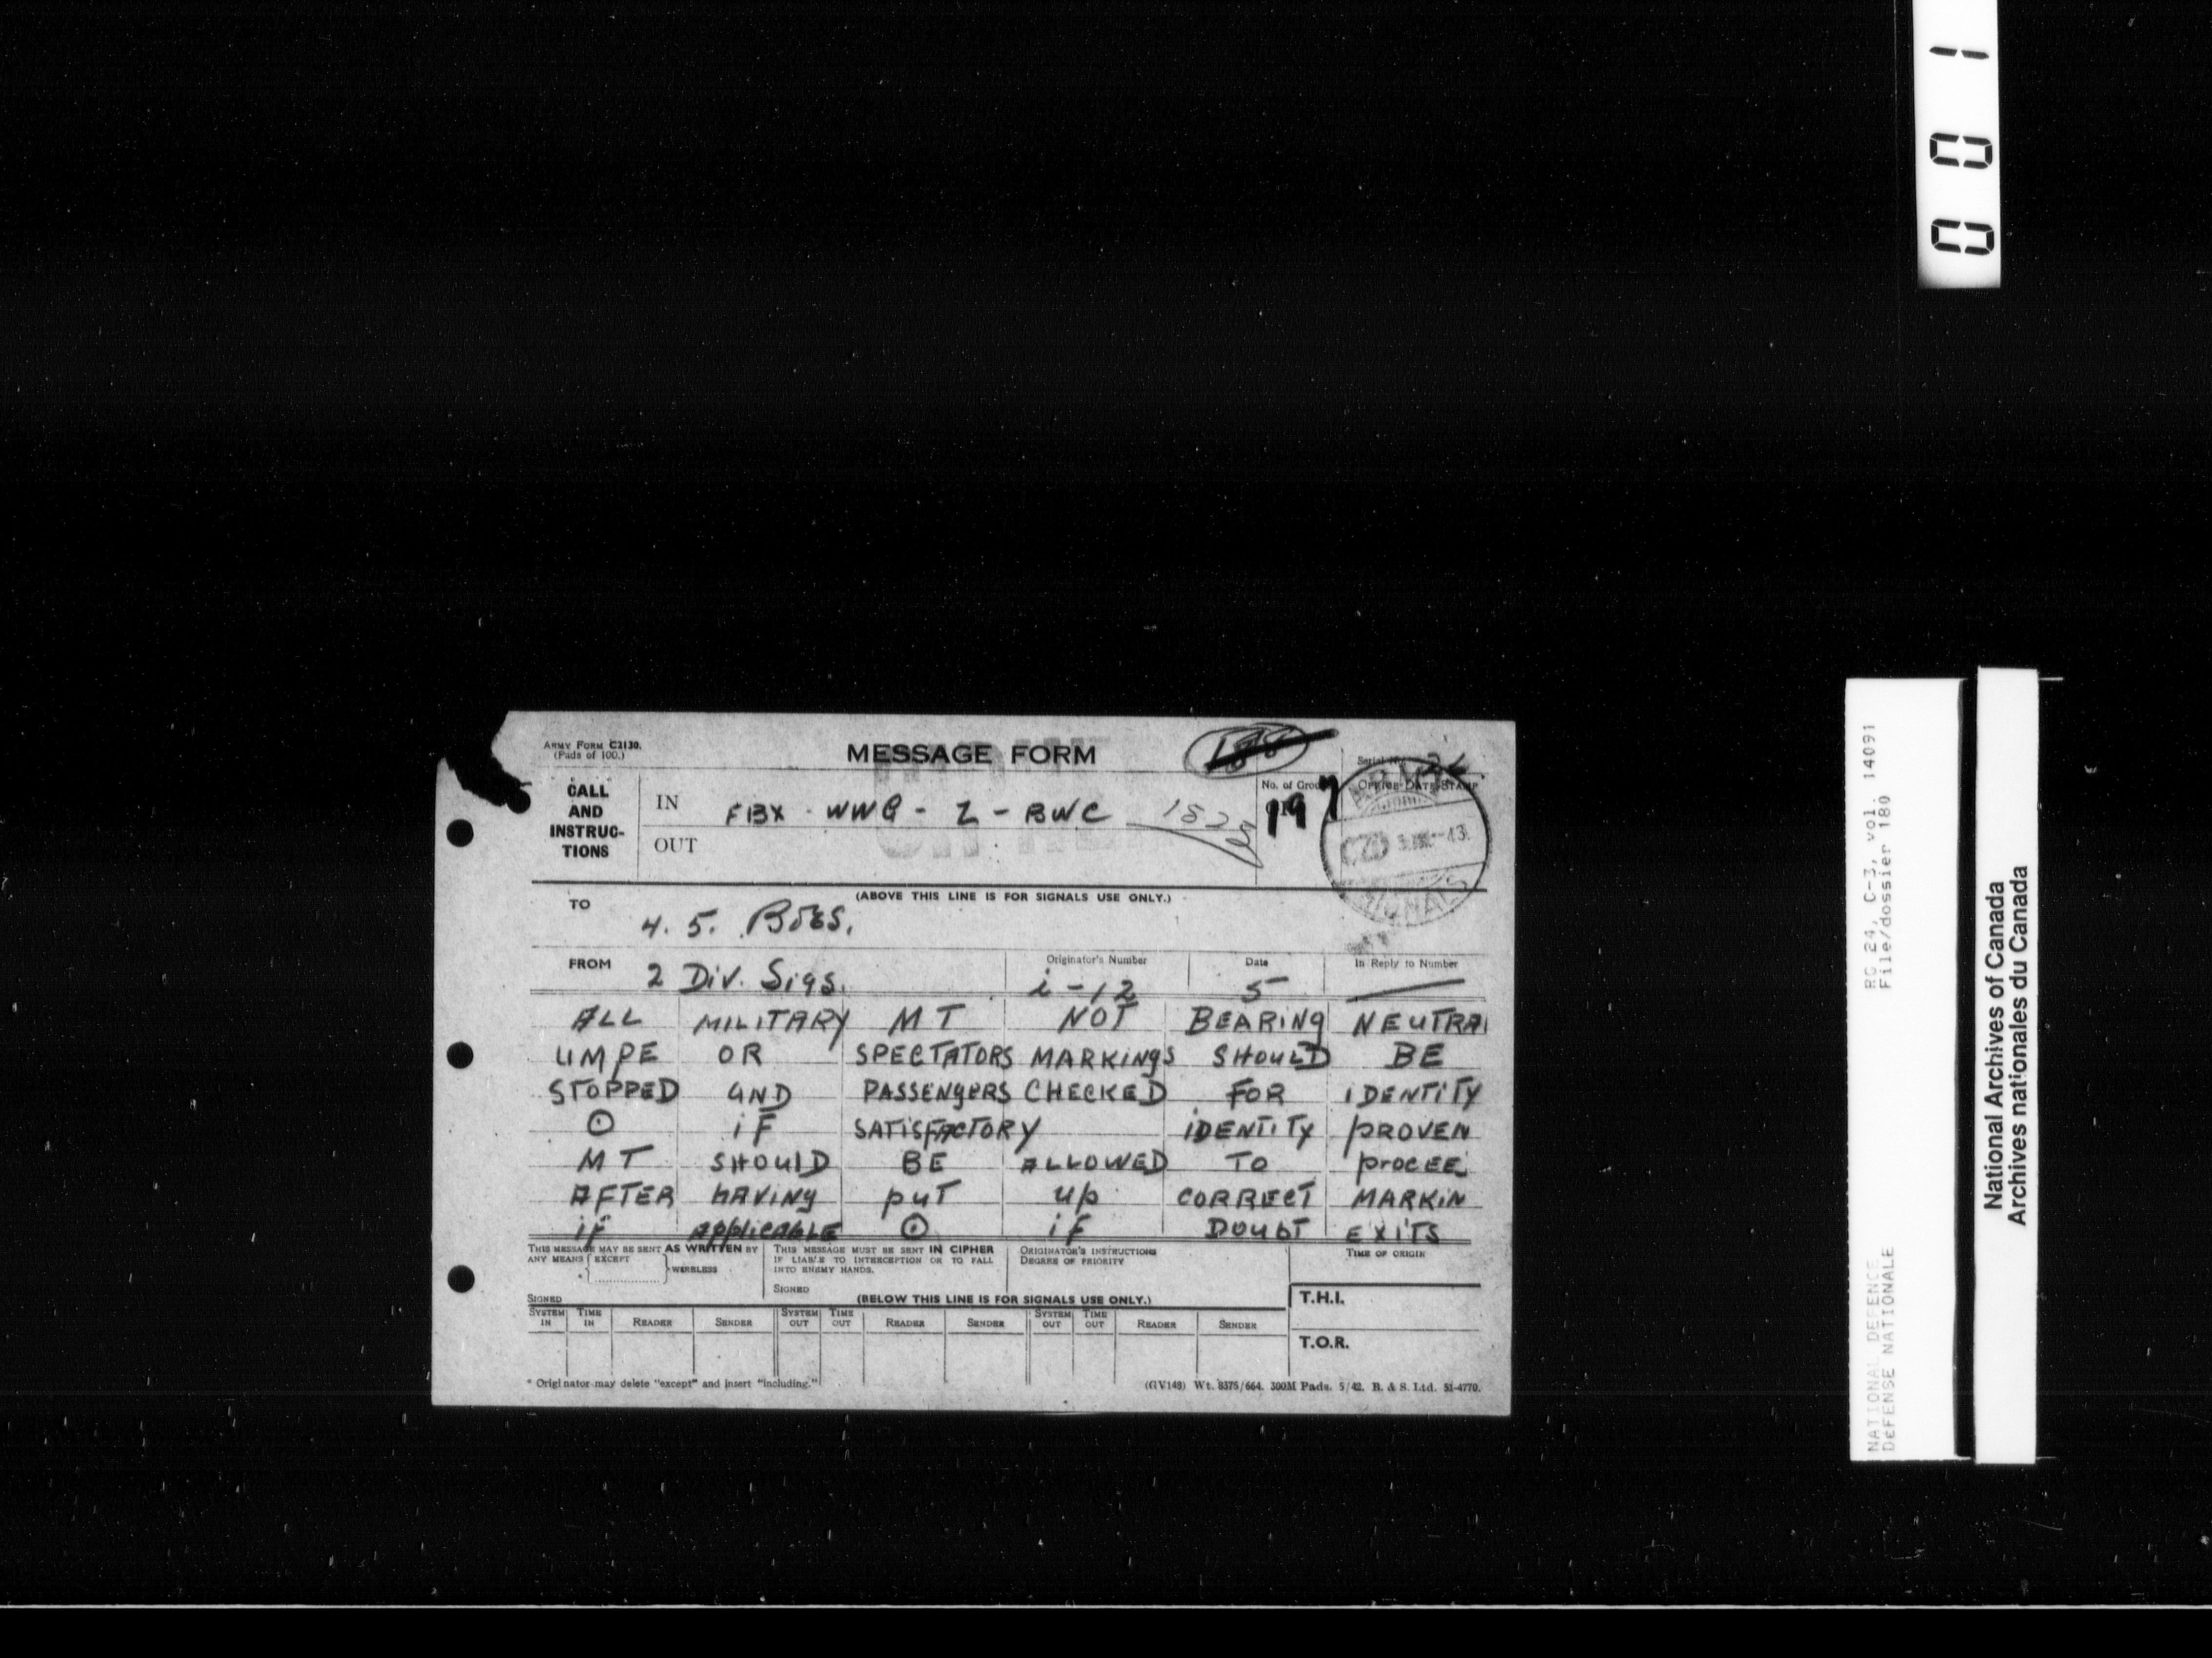 001
ARMY FORM C2130.
(Pads of 100.)
MESSAGE FORM
Serial No.
CALL AND INSTRUC-TIONS
IN FBX - WWG - Z - BWC
OUT
No. of Groups
OFFICE DATE STAMP
197
SIGNALS
(ABOVE THIS LINE IS FOR SIGNALS USE ONLY.)
TO 4. 5. Bdes.
FROM 2 Div. Sigs.
Originator's Number i-12
Date 5
In Reply to Number —
ALL MILITARY MT NOT BEARING NEUTRAL
UMPE OR SPECTATORS MARKINGS SHOULD BE
STOPPED AND PASSENGERS CHECKED FOR IDENTITY
⊙ IF SATISFACTORY IDENTITY PROVEN
MT SHOULD BE ALLOWED TO PROCEE
AFTER HAVING PUT UP CORRECT MARKIN
IF APPLICABLE ⊙ IF DOUBT EXITS
THIS MESSAGE MAY BE SENT AS WRITTEN BY ANY MEANS EXCEPT WIRELESS
SIGNED
THIS MESSAGE MUST BE SENT IN CIPHER IF LIABLE TO INTERCEPTION OR TO FALL INTO ENEMY HANDS.
SIGNED
ORIGINATOR'S INSTRUCTIONS
DEGREE OF PRIORITY
TIME OF ORIGIN
(BELOW THIS LINE IS FOR SIGNALS USE ONLY.)
T.H.I.
T.O.R.
SYSTEM IN TIME IN READER SENDER SYSTEM OUT TIME OUT READER SENDER SYSTEM OUT TIME OUT READER SENDER
* Originator may delete "except" and insert "including."
(GV148) Wt. 8375/664. 300M Pads. 5/42. B. & S. Ltd. 51-4770.
RG 24, C-3, vol. 14091
File/dossier 180
NATIONAL DEFENCE
DEFENSE NATIONALE
National Archives of Canada
Archives nationales du Canada